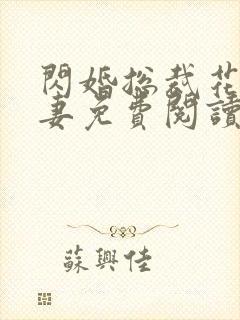 閃婚总裁花
妻免費閱讀
蘇興佳